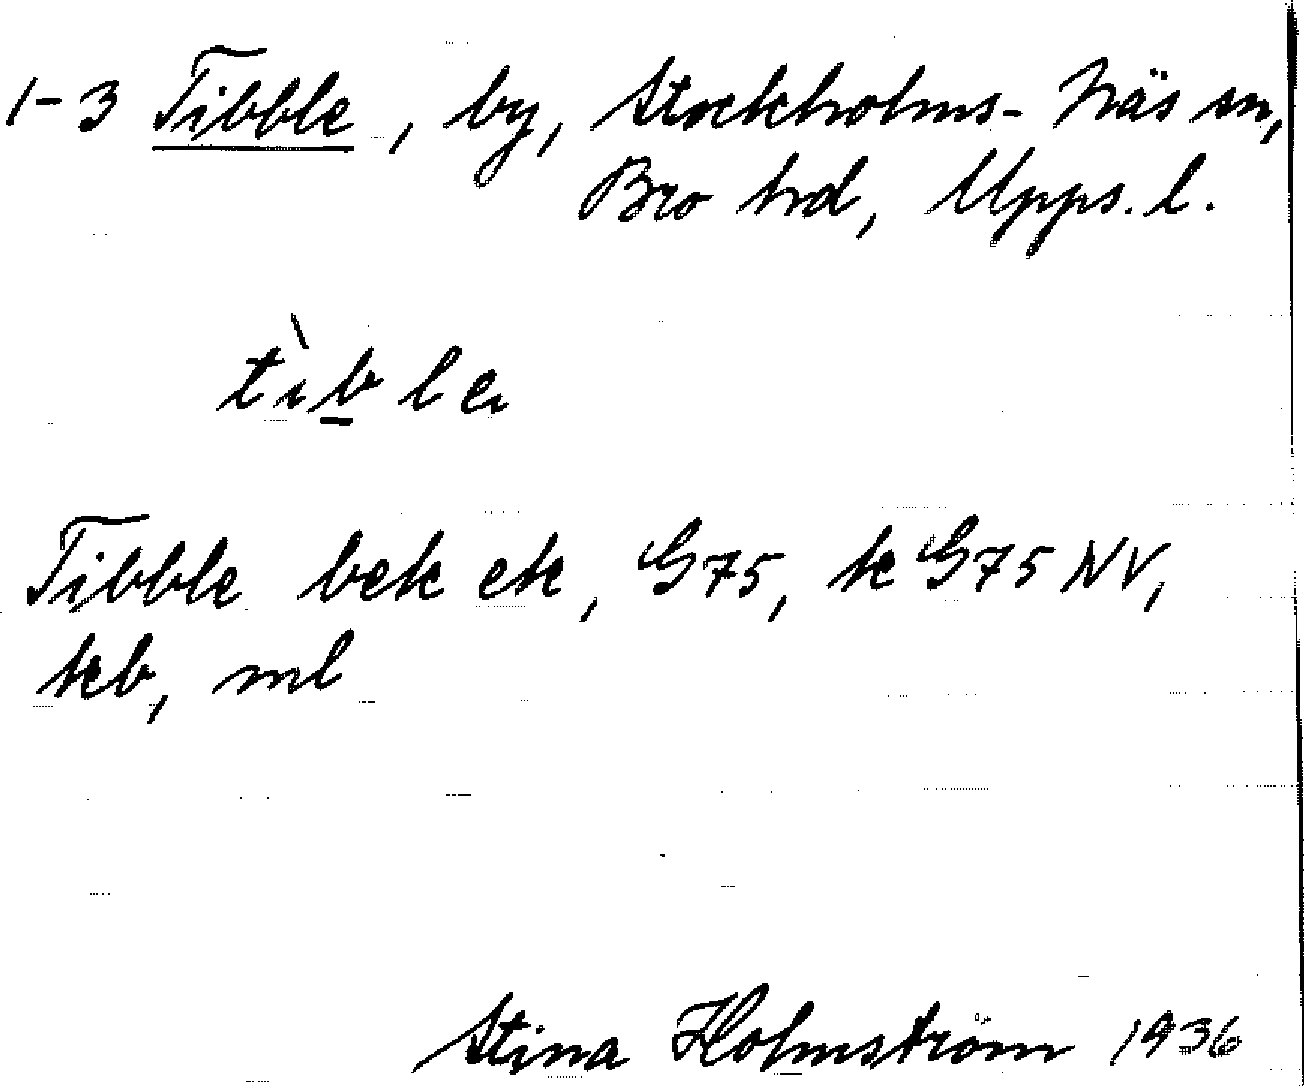 1-3 Tibble, by, Stockholms-Näs sn,
Bro hd, Upps. l.
tìble
Tibble bek ek, G75, k G75 NV,
kb, ml
Stina Holmström 1936